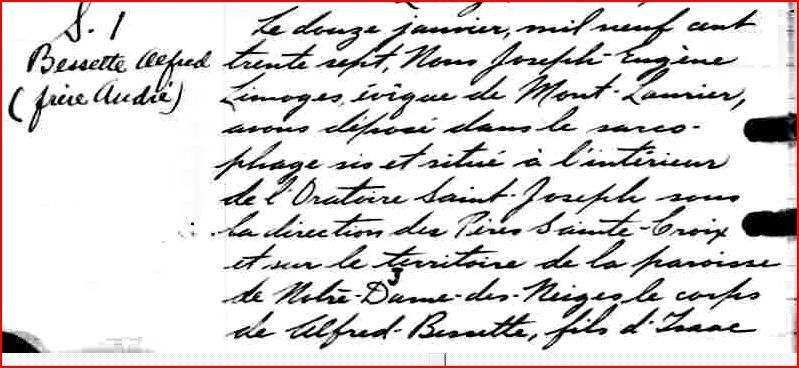 S. 1
Bessette Alfred
(frère André)
Le douze janvier, mil neuf cent
trente sept, Nous Joseph-Eugène
Limoges, évêque de Mont-Laurier,
avons déposé dans le sarco-
phage sis et situé à l'intérieur
de l'Oratoire Saint-Joseph sous
la direction des Pères Sainte-Croix
et sur le territoire de la paroisse
de Notre-Dame-des-Neiges, le corps
de Alfred-Bessette, fils d'Isaac